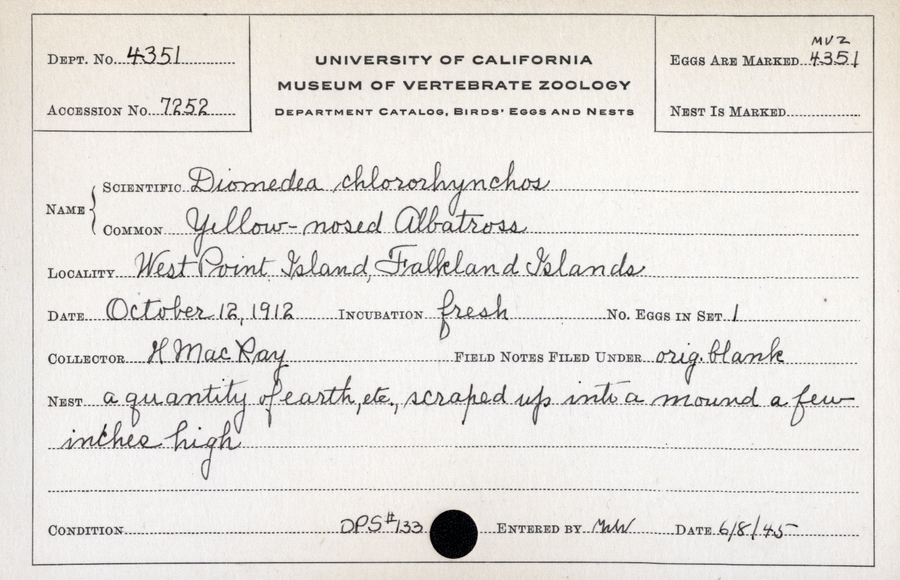 DEPT. NO. 4351
ACCESSION NO. 7252
UNIVERSITY OF CALIFORNIA
MUSEUM OF VERTEBRATE ZOOLOGY
DEPARTMENT CATALOG, BIRDS' EGGS AND NESTS
MVZ
EGGS ARE MARKED 4351
NEST IS MARKED
NAME
SCIENTIFIC Diomedea chlororhynchos
COMMON Yellow-nosed Albatross
LOCALITY West Point Island, Falkland Islands
DATE October 12, 1912 INCUBATION fresh NO. EGGS IN SET 1
COLLECTOR H MacRay FIELD NOTES FILED UNDER orig. blank
NEST a quantity of earth, etc., scraped up into a mound a few
inches high
CONDITION DPS #133 ENTERED BY DATE 6/8/45